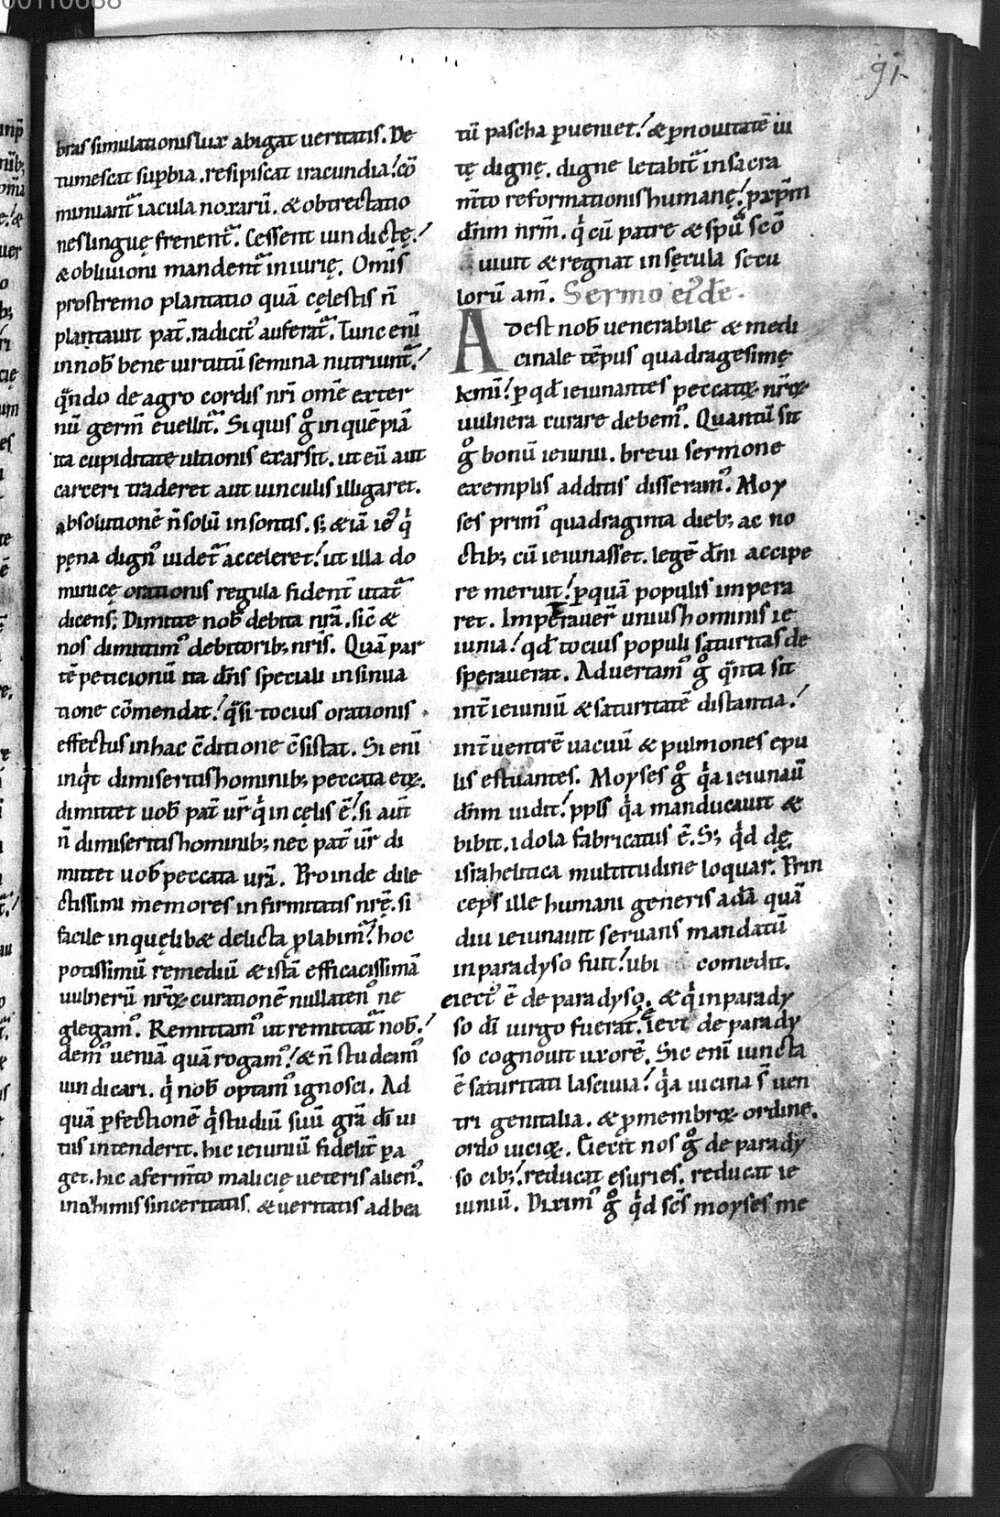 91
bras simulationis lux abigat ueritatis. De
tumescat supbia. resipiscat iracundia! cō
minuant᷑ iacula noxarū. & obtrectatio
nes linguę frenent᷑. Cessent uindictę!
& obliuioni mandent᷑ iniurię. Om̄is
prostremo plantatio quā cęlestis n̄
plantauit pat̄. radicit᷒ auferat᷑. Tunc eni̅
in nob̄ bene uirtutū semina nutriunt᷑!
q̄ndo de agro cordis nr̄i om̄e exter
nū germ̄ euellit᷑. Si quis g̊ in quēpiā
ita cupiditate ultionis exarsit. ut eū aut
carceri traderet aut uinculis illigaret.
absolutionē n̄ solū insontis. s; & iā
pęna dign᷒ uidet᷑ acceleret! ut illa do
minicę orationis regula fident̄ utat᷑
dicens; Dimitte nob̄ debita nr̄a. sic̄ &
nos dimittim᷒ debitorib; nr̄is. Quā par
tē peticionū ita dn̄s speciali insinua
tione cōmendat! q̄si tocius orationis
effectus in hac c̄ditione c̄sistat. Si eni̅
inq̇t dimiseritis hominib; peccata eoꝝ.
dimittet uob̄ pat̄ ur̄ q̇ in cęlis ē! si aut̄
n̄ dimiseritis hominib; nec pat̄ ur̄ di
mittet uob̄ peccata ur̄a. Proinde dile
ctissimi memores infirmitatis nr̄ę. si
facile in quęlib& delicta plabim᷒! hoc
potissimū remediū & istā efficacissimā
uulnerū nr̄oꝝ curationē nullaten᷒ ne
glegam᷒. Remittam᷒ ut remittat᷑ nob̄!
dem᷒ ueniā quā rogam᷒! & n̄ studeam᷒
uindicari. q̇ nob̄ optam᷒ ignosci. Ad
quā pfectionē q̇ studiū suū gr̄a dī ui
tus intenderit. hic ieiuniū fidelit̄ pa
get. hic a ferm̄to malicię ueteris alien᷒.
in ahimis sinceritatis. & ueritatis ad bea
tū pascha pueniet! & p nouitatē ui
tę dignę. digne letabit᷑ in sacra
m̄to reformationis humanę! p xp̄m
dn̄m nr̄m. q̇ cū patre & spū sc̄o
uiuit & regnat in sęcula secu
lorū am̄. Sermo eiꝰdē.
Adest nob̄ uenerabile & medi
cinale tēpus quadragesimę
k̄mi! p qd̄ ieiunantes peccatoꝝ nr̄oꝝ
uulnera curare debem᷒. Quantū sit
g̊ bonū ieiunii. breui sermone
exemplis additis disseram᷒. Moy
ses prim᷒ quadraginta dieb; ac no
ctib; cū ieiunasset. legē dn̄i accipe
re meruit! p quā populis impera
ret. Imperauer̄ unius hominis ie
iunia! qd̄ tocius populi saturitas de
sperauerat. Aduertam᷒ g̊ q̄nta sit
int̄ ieiuniū & saturitatē distantia!
int̄ uentrē uacuū & pulmones epu
lis estuantes. Moyses g̊ q̇a ieiunauit
dn̄m uidit! ppl̄s q̇a manducauit &
bibit. idola fabricatus ē. S; q̇d de
israhelitica multitudine loquar. Prin
ceps ille humani generis adā quā
diu ieiunauit seruans mandatū
in paradyso fuit! ubi comedit.
eiect᷒ ē de paradyso. & q̇ in parady
so dī uirgo fuerat. iect᷒ de parady
so cognouit uxorē. Sic eni̅ iuncta
ē saturitati lasciuia! q̇a uicina s̄ uen
tri genitalia. & p membroꝝ ordine.
ordo uicioꝝ. Eiecit nos g̊ de parady
so cib;! reducat esuries. reducat ie
iuniū. Dixim᷒ g̊ q̇d sc̄s moyses me